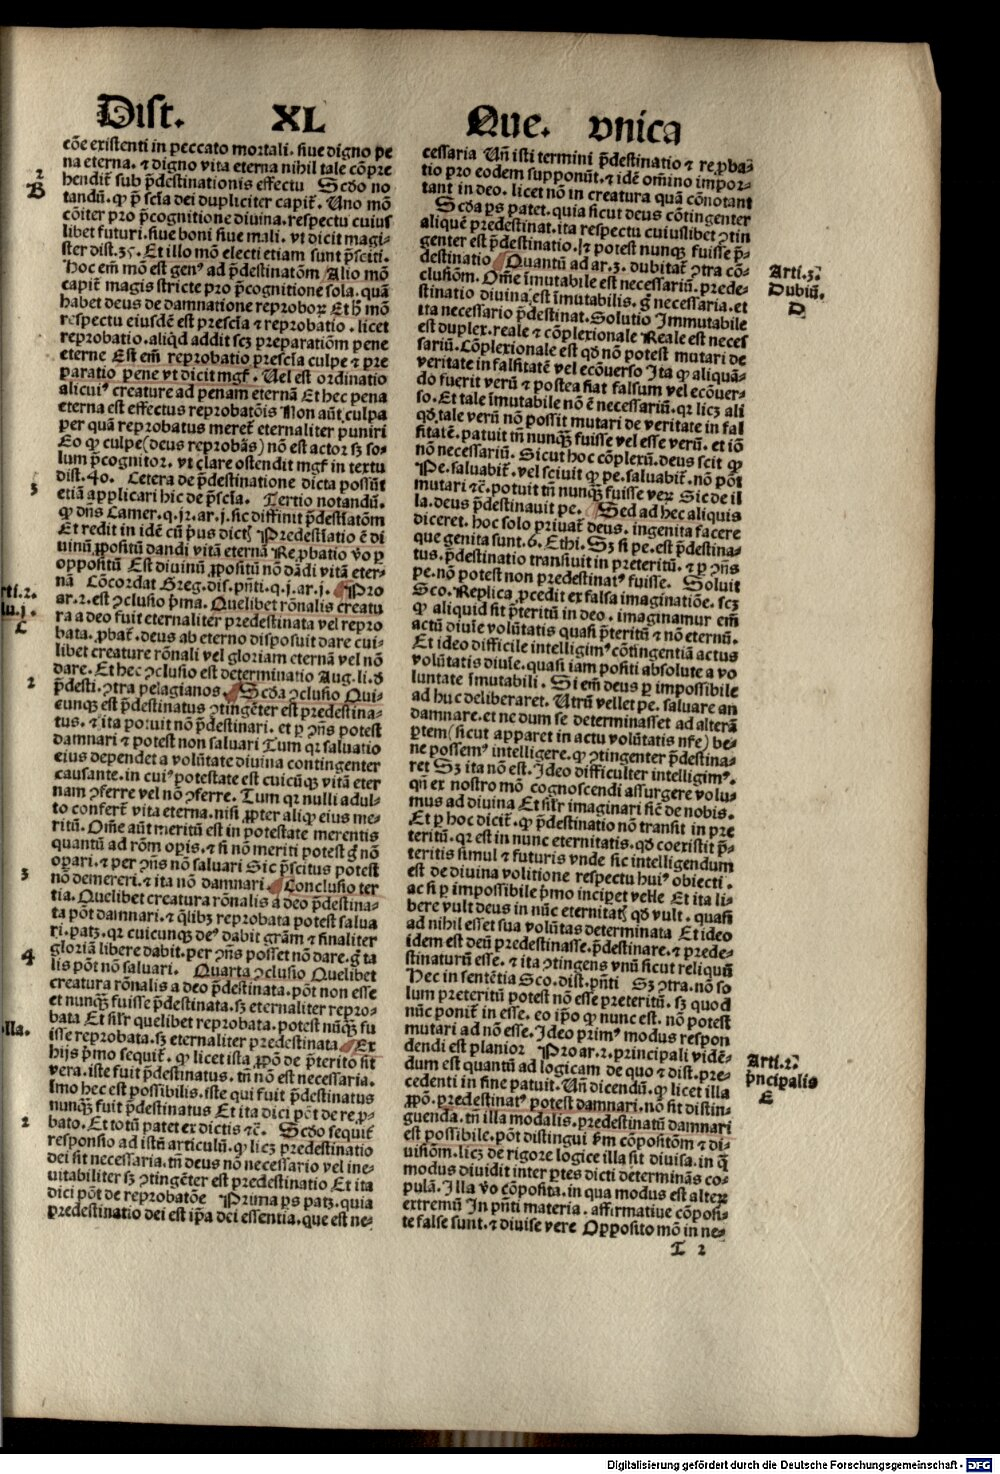 Dist. XL
Que. vnica
cõe existenti in peccato mortali. siue digno pe
na eterna. ⁊ digno vita eterna nihil tale cõpre
hendit᷑ sub p̃destinationis effectu Scďo no
tandũ. ꝙ p̃ scĩa dei dupliciter capit᷑. Uno mõ
cõiter pro p̃cognitione diuina. respectu cuius
libet futuri. siue boni siue mali. vt dicit magi⸗
ster dist. 35. Et illo mõ electi etiam sunt p̃sciti.
Hoc em̃ mõ est genꝰ ad p̃destinatõm Alio mõ
capit᷑ magis stricte pro p̃cognitione sola. quã
habet deus de damnatione reproboꝝ Et h̃ mõ
respectu eiusdẽ est prescĩa ⁊ reprobatio. licet
reprobatio. aliq̇d addit scꝫ preparatiõm pene
eterne Est em̃ reprobatio prescĩa culpe ⁊ pre
paratio pene vt dicit mgr̃. Uel est ordinatio
alicuiꝰ creature ad penam eternã Et hec pena
eterna est effectus reprobatõis Non aũt culpa
per quã reprobatus meret᷑ eternaliter puniri
Eo ꝙ culpe (deus reprobãs) nõ est actor sꝫ so⸗
lum p̃cognitor. vt clare ostendit mgr̃ in textu
dist. 40. Cetera de p̃destinatione dicta possũt
etiã applicari hic de p̃scĩa. Tertio notandũ.
ꝙ dñs Camer. q. j2. ar. j. sic diffinit p̃destĩatõm
Et redit in idẽ cũ p̃us dict̃ Predestĩatio ẽ di
uinũ ꝓpositũ dandi vitã eternã Re ꝓbatio v̊o ꝑ
oppositũ Est diuinũ ꝓpositũ nõ dãdi vitã eter⸗
nã Cõcordat Greg. dis. pñti. q. j. ar. j. Pro
ar. 2. est ꝯclusio p̃ma. Quelibet rõnalis creatu
ra a deo fuit eternaliter predestinata vel repro
bata. ꝓbat᷑. deus ab eterno disposuit dare cui⸗
libet creature rõnali vel gloriam eternã vel nõ
dare. Et hec ꝯclusio est determinatio Aug. li. ď
p̃desti. ꝯtra pelagianos. Scďa ꝯclusio Qui⸗
cunqꝫ est p̃destinatus ꝯtingẽter est predestina⸗
tus. ⁊ ita potuit nõ p̃destinari. et ꝑ ꝯñs potest
damnari ⁊ potest non saluari Tum qꝛ saluatio
eius dependet a volũtate diuina contingenter
causante. in cuiꝰ potestate est cuicũqꝫ vitã eter
nam ꝯferre vel nõ ꝯferre. Tum qꝛ nulli adul⸗
to confert᷑ vita eterna. nisi ꝓpter aliqḋ eius me⸗
ritũ. Om̃e aũt meritũ est in potestate merentis
quantũ ad rõm opis. ⁊ si nõ meriti potest g̊ nõ
oꝑari. ⁊ per ꝯñs nõ saluari Sic p̃scitus potest
nõ demereri. ⁊ ita nõ damnari. Conclusio ter
tia. Quelibet creatura rõnalis a deo p̃destina⸗
ta põt damnari. ⁊ q̃libꝫ reprobata potest salua
ri. patꝫ. qꝛ cuicunqꝫ deꝰ dabit grãm ⁊ finaliter
gloriã libere dabit. per ꝯñs posset nõ dare. g̊ ta
lis põt nõ saluari. Quarta ꝯclusio Quelibet
creatura rõnalis a deo p̃destinata. põt non esse
et nunqꝫ fuisse p̃destinata. sꝫ eternaliter repro⸗
bata Et sil̃r quelibet reprobata. potest nũqꝫ fu
isse reprobata. sꝫ eternaliter predestinata. Ex
hijs p̃mo sequit᷑. ꝙ licet ista ꝓpõ de p̃terito sit
vera. iste fuit p̃destinatus. tñ nõ est necessaria.
Imo hec est possibilis. iste qui fuit p̃destinatus
nunqꝫ fuit p̃destinatus Et ita dici põt de re ꝓ⸗
bato. Et totũ patet ex dictis ⁊c̃. Scďo sequit᷑
responsio ad istũ articulũ. ꝙ licꝫ predestinatio
dei sit necessaria. tñ deus nõ necessario vel ine⸗
uitabiliter sꝫ ꝯtingẽter est predestinatio Et ita
dici põt de reprobatõe Prima ꝑs patꝫ. quia
predestinatio dei est ip̃a dei essentia. que est ne⸗
2
B
3
rti. 2.
lu. j.
C
2
3
4
lla.
2
cessaria Uñ isti termini p̃destinatio ⁊ re ꝓba⸗
tio pro eodem supponũt. ⁊ idẽ om̃ino impor⸗
tant in deo. licet nõ in creatura quã cõnotant
Scďa ꝑs patet. quia sicut deus cõtingenter
aliquẽ predestinat. ita respectu cuiuslibet ꝯtin
genter est p̃destinatio. lꝫ potest nunqꝫ fuisse p̃⸗
destinatio Quantũ ad ar. 3. dubitat᷑ ꝯtra cõ⸗
clusiõm. Om̃e ĩmutabile est necessariũ. prede⸗
stinatio diuina est ĩmutabilis. g̊ necessaria. et
ita necessario p̃destinat. Solutio Immutabile
est duplex. reale ⁊ cõplexionale Reale est neces
sariũ. Cõplexionale est qḋ nõ potest mutari de
veritate in falsitatẽ vel ecõuerso Ita ꝙ aliquã⸗
do fuerit verũ ⁊ postea fiat falsum vel ecõuer⸗
so. Et tale ĩmutabile nõ ẽ necessariũ. qꝛ licꝫ ali
qḋ tale verũ nõ possit mutari de veritate in fal
sitatẽ. patuit tñ nunqꝫ fuisse vel esse verũ. et iõ
nõ necessariũ. Sicut hoc cõplexũ. deus scit ꝙ
Pe. saluabit᷑. vel sciuit ꝙ pe. saluabit᷑. nõ põt
mutari ⁊c̃. potuit tñ nunqꝫ fuisse veꝝ Sic de il
la. deus p̃destinauit pe. Sed ad hec aliquis
diceret. hoc solo priuat᷑ deus. ingenita facere
que genita sunt. 6. Ethi. Sꝫ si pe. est p̃destina⸗
tus. p̃destinatio transiuit in preteritũ. ⁊ ꝑ ꝯñs
pe. nõ potest non predestinatꝰ fuisse. Soluit
Sco. Replica ꝓcedit ex falsa imaginatiõe. scꝫ
ꝙ aliquid sit p̃teritũ in deo. imaginamur em̃
actũ diuĩe volũtatis quasi p̃teritũ ⁊ nõ eternũ.
Et ideo difficile intelligimꝰ cõtingẽtiã actus
volũtatis diuĩe. quasi iam positi absolute a vo
luntate ĩmutabili. Si em̃ deus ꝑ impossibile
ad huc deliberaret. Utrũ vellet pe. saluare an
damnare. et nc dum se determinasset ad alterã
ꝑtem (sicut apparet in actu volũtatis nr̃e) be⸗
ne possemꝰ intelligere. ꝙ ꝯtingenter p̃destina⸗
ret Sꝫ ita nõ est. Ideo difficulter intelligimꝰ.
qñ ex nostro mõ cognoscendi assurgere volu⸗
mus ad diuina Et sil̃r imaginari sic̃ de nobis.
Et ꝑ hoc dicit᷑. ꝙ p̃destinatio nõ transit in pre
teritũ. qꝛ est in nunc eternitatis. qḋ coexistit p̃⸗
teritis simul ⁊ futuris vnde sic intelligendum
est de diuina volitione respectu huiꝰ obiecti.
ac si ꝑ impossibile p̃mo inciꝑet velle Et ita li⸗
bere vult deus in nũc eternitat̃ qḋ vult. quasi
ad nihil esset sua volũtas determinata Et ideo
idem est deũ predestinasse. p̃destinare. ⁊ prede⸗
stinaturũ esse. ⁊ ita ꝯtingens vnũ sicut reliquũ
Hec in sentẽtia Sco. dist. pñti Sꝫ ꝯtra. nõ so
lum preteritũ potest nõ esse preteritũ. sꝫ quod
nũc ponit᷑ in esse. eo ip̃o ꝙ nunc est. nõ potest
mutari ad nõ esse. Ideo primꝰ modus respon
dendi est planior Pro ar. 2. principali vidẽ⸗
dum est quantũ ad logicam de quo ⁊ dist. pre⸗
cedenti in fine patuit. Uñ dicendũ. ꝙ licet illa
ꝓpõ. predestinatꝰ potest damnari. nõ sit distin⸗
guenda. tñ illa modalis. predestinatũ damnari
est possibile. põt distingui ẜm cõpositõm ⁊ di⸗
uisiõm. licꝫ de rigore logice illa sit diuisa. in q̃
modus diuidit inter ꝑtes dicti determinãs co⸗
pulã. Illa v̊o cõposita. in qua modus est alteꝝ
extremũ In pñti materia. affirmatiue cõposi⸗
te false sunt. ⁊ diuise vere Opposito mõ in ne⸗
T 2
Arti. 3.
Dubiũ.
D
Arti. 2.
p̃ncipalis
E
Digitalisierung gefördert durch die Deutsche Forschungsgemeinschaft - DFG